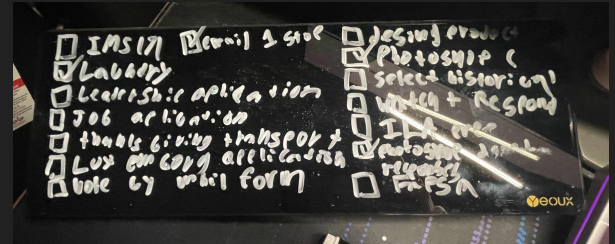 IMS 171
email 1 stol
Laundry
Leadership aplication
JOB aplication
thanksgiving transport
Lux application
Vote by mail form
design product
Photoshop
select historical
Watch + Respond
ILA
Photoshop
FAFSA
Yeoux